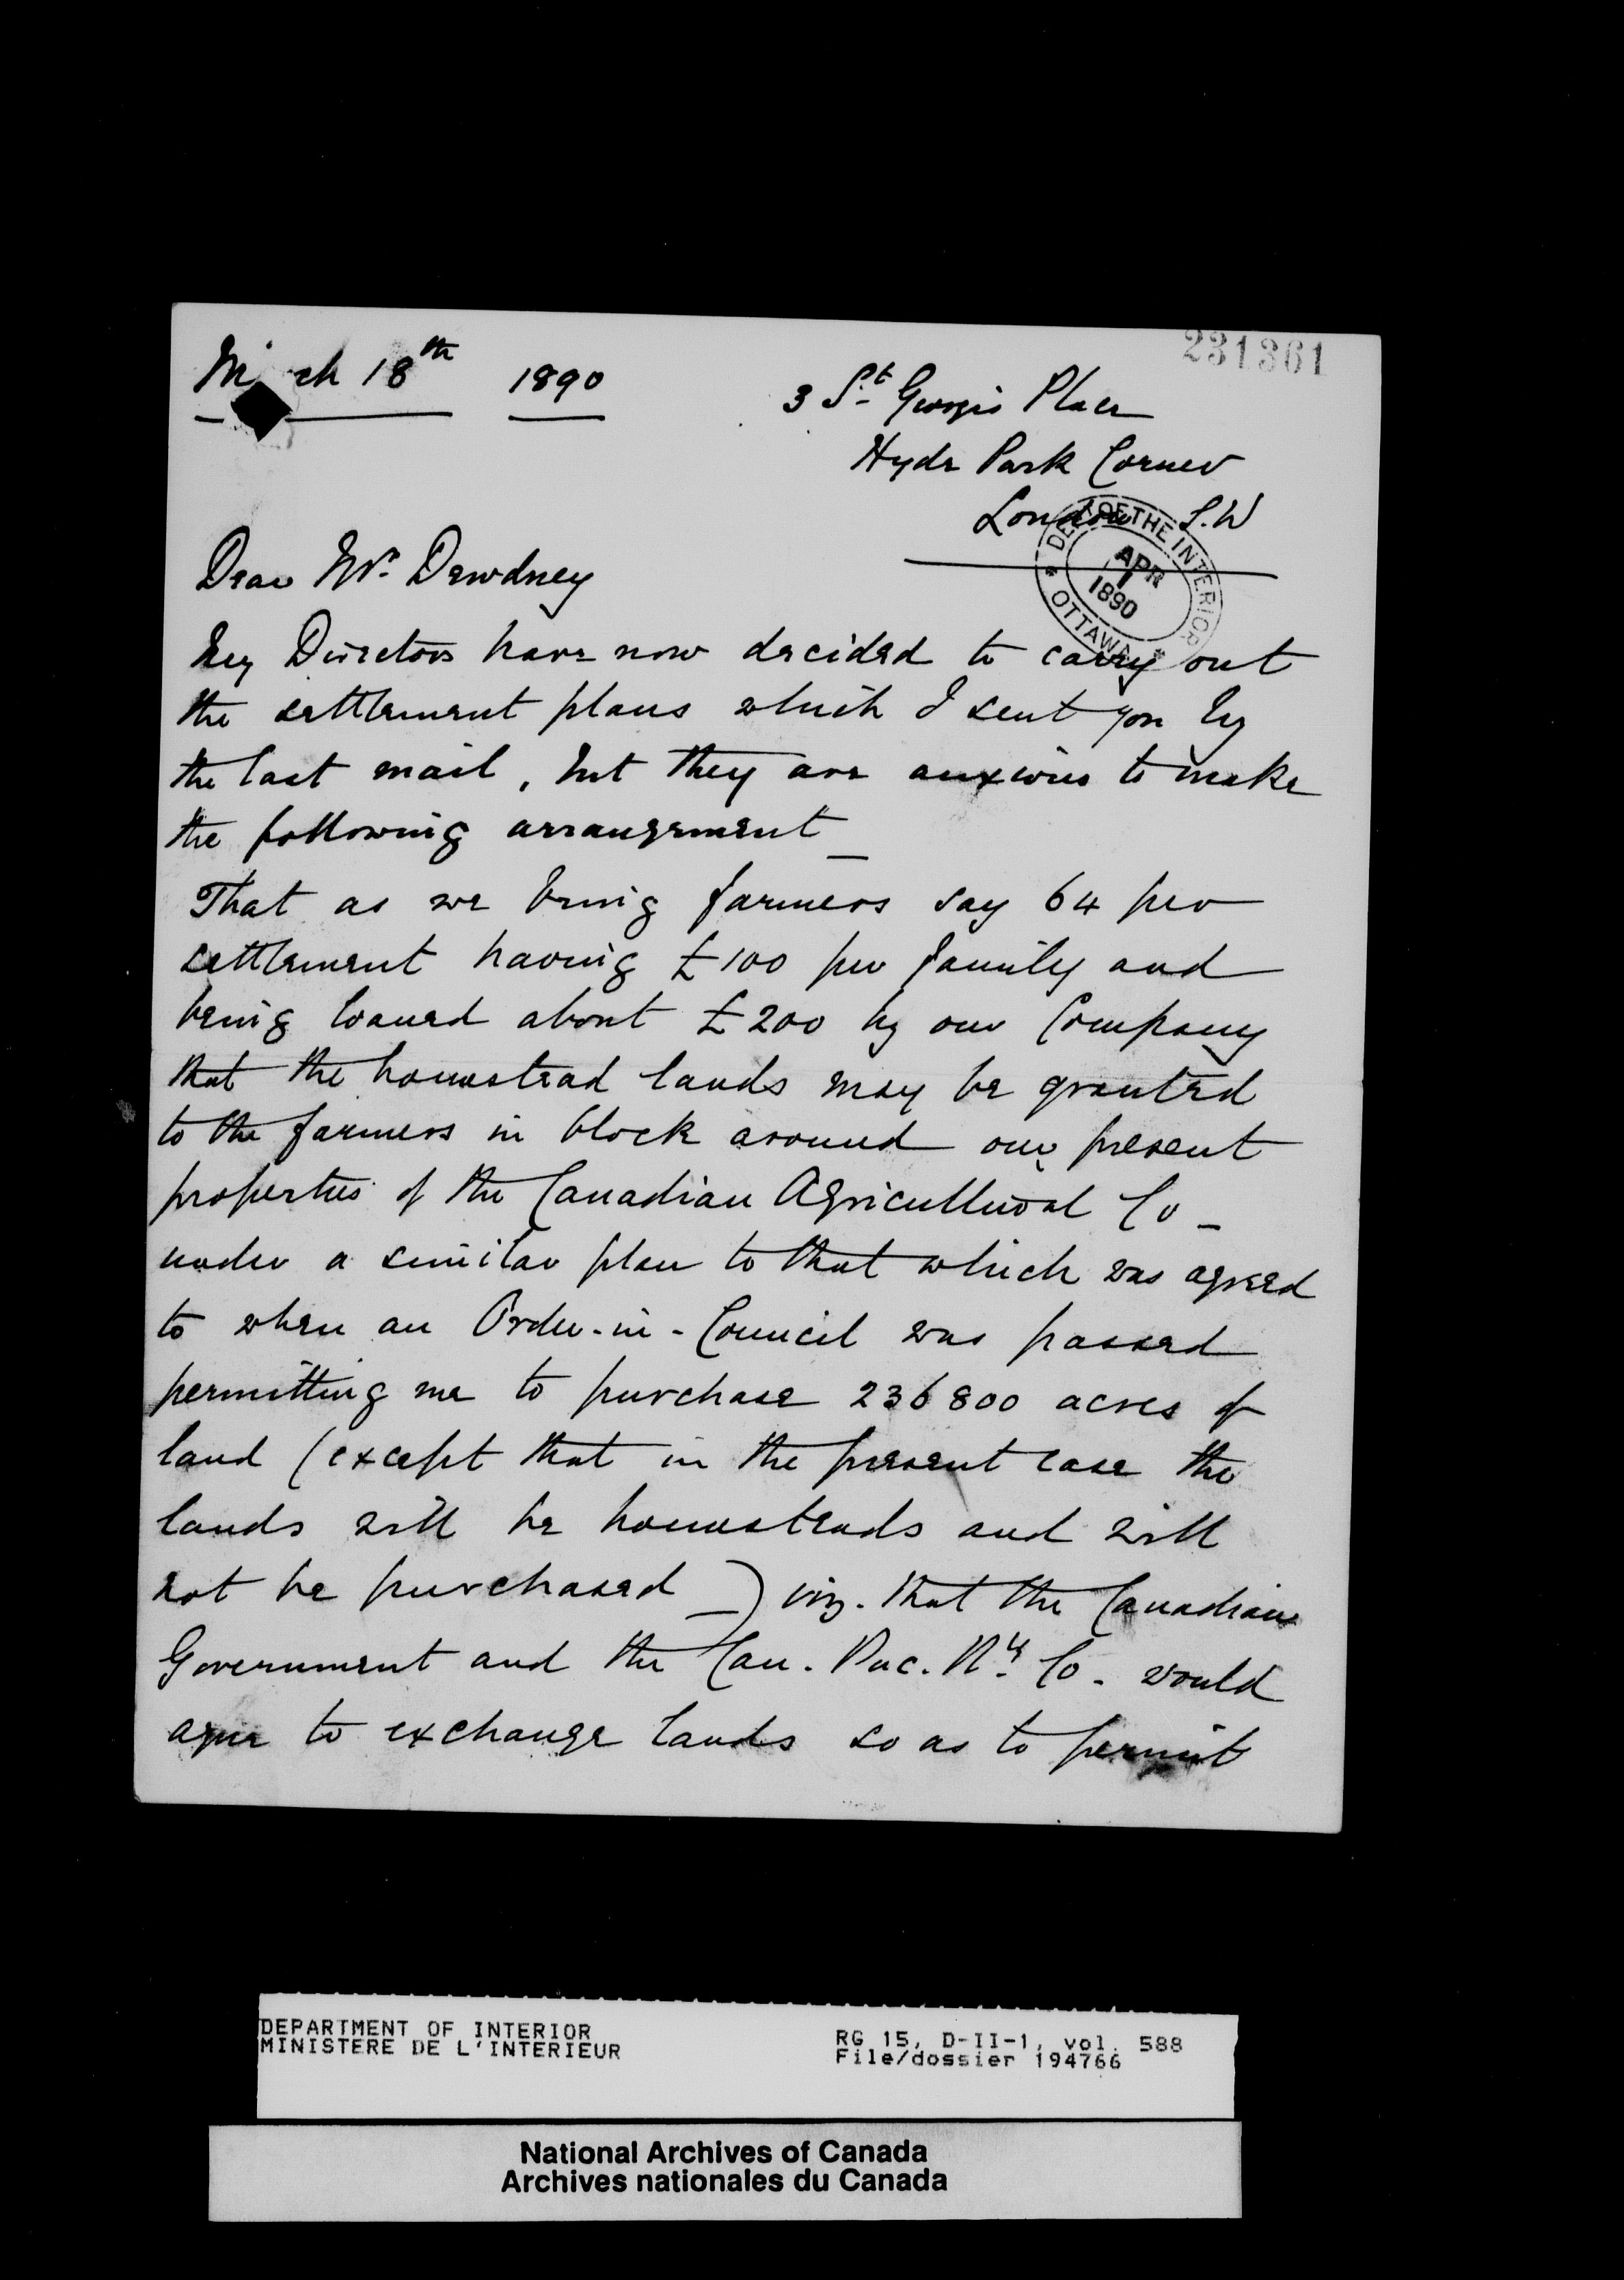 231361
March 18th 1890
3 St. Georges Place
Hyde Park Corner
London S.W
DEPT OF THE INTERIOR
APR
1
1890
OTTAWA
Dear Mr. Dewdney
My Directors have now decided to carry out
the settlement plans which I sent you by
the last mail, but they are anxious to make
the following arrangement _
That as we bring farmers say 64 per
settlement having £100 per family and
being loaned about £200 by our Company
that the homestead lands may be granted
to the farmers in block around our present
properties of the Canadian Agricultural Co _
under a similar plan to that which was agreed
to when an Order-in-Council was passed
permitting me to purchase 236800 acres of
land (except that in the present case the
lands will be homesteads and will
not be purchased _) viz. that the Canadian
Government and the Can. Pac. Ry. Co. would
agree to exchange lands so as to permit
DEPARTMENT OF INTERIOR
MINISTERE DE L'INTERIEUR
RG 15, D-II-1, vol. 588
File/dossier 194766
National Archives of Canada
Archives nationales du Canada